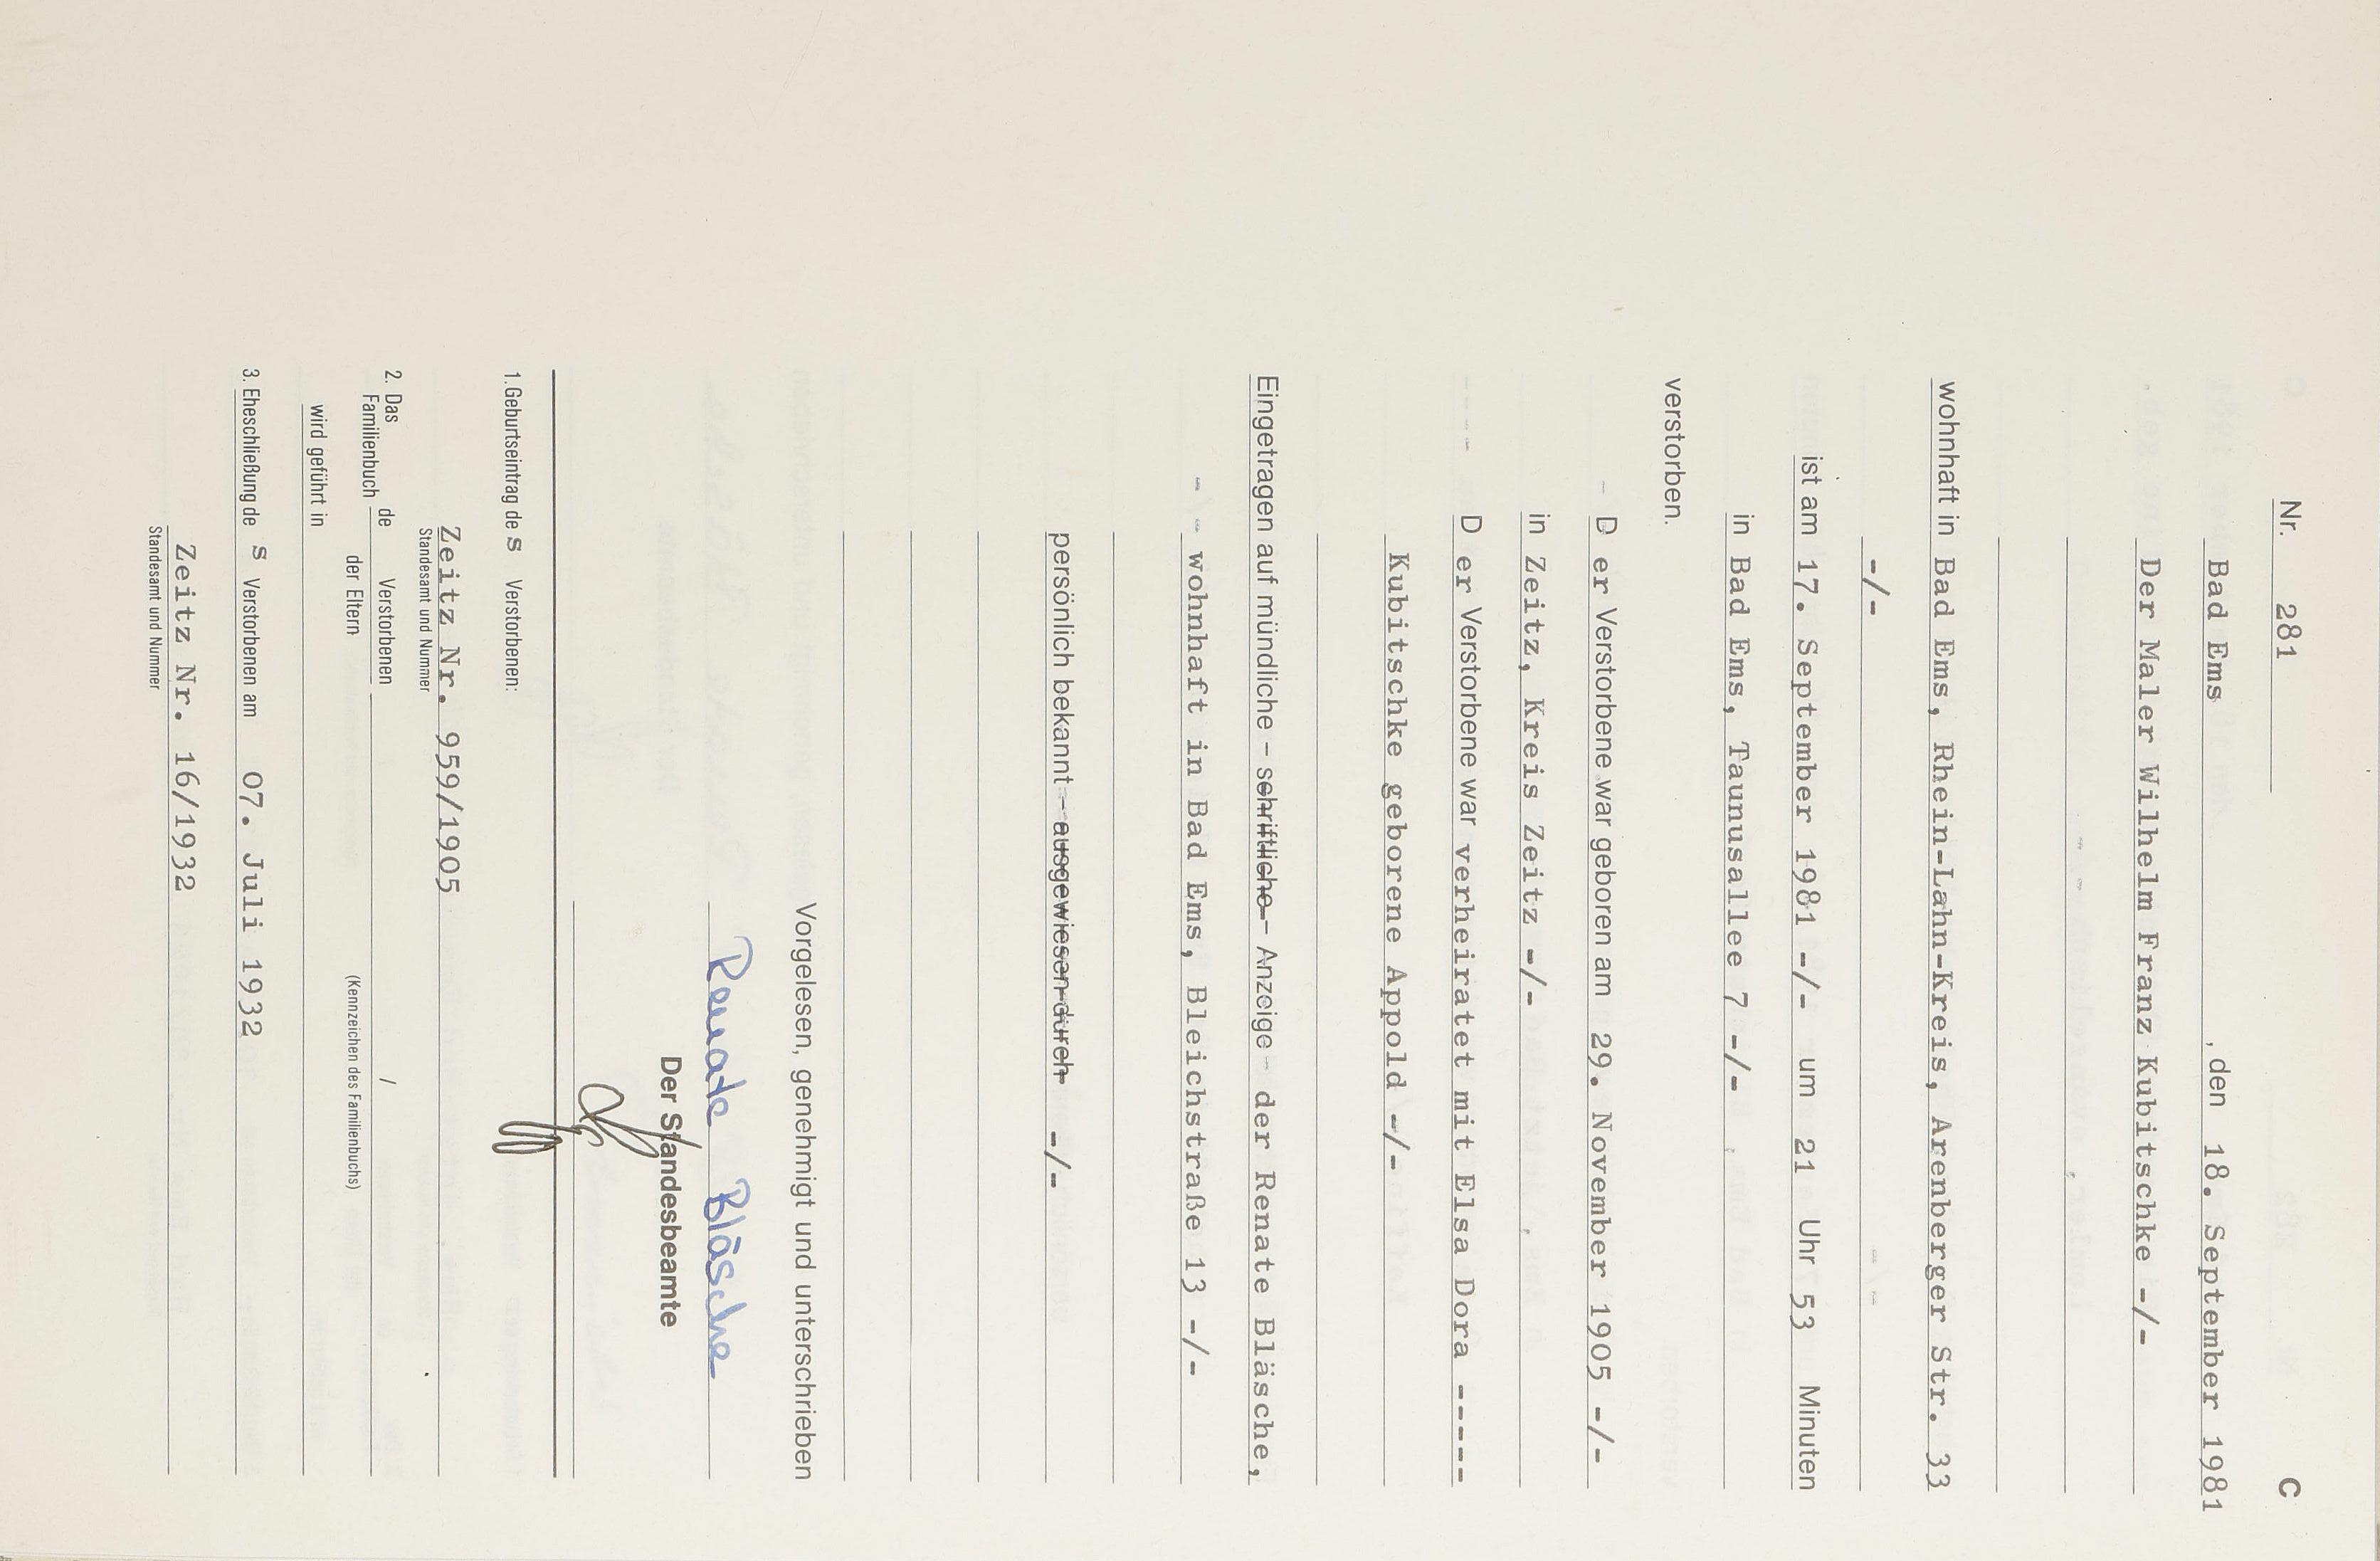 Nr. 281 C
Bad Ems , den 18. September 1981
Der Maler Wilhelm Franz Kubitschke -/-
wohnhaft in Bad Ems, Rhein-Lahn-Kreis, Arenberger Str. 33
-/-
ist am 17. September 1981 -/- um 21 Uhr 53 Minuten
in Bad Ems, Taunusallee 7 -/-
verstorben.
D er Verstorbene war geboren am 29. November 1905 -/-
in Zeitz, Kreis Zeitz -/-
D er Verstorbene war verheiratet mit Elsa Dora -----
Kubitschke geborene Appold -/-
Eingetragen auf mündliche – schriftliche – Anzeige – der Renate Bläsche,
- - wohnhaft in Bad Ems, Bleichstraße 13 -/-
persönlich bekannt – ausgewiesen durch -/-
Vorgelesen, genehmigt und unterschrieben
Renate Bläsche
Der Standesbeamte
1. Geburtseintrag de s Verstorbenen:
Zeitz Nr. 959/1905
Standesamt und Nummer
2. Das Familienbuch de Verstorbenen /
der Eltern (Kennzeichen des Familienbuchs)
wird geführt in
3. Eheschließung de s Verstorbenen am 07. Juli 1932
Zeitz Nr. 16/1932
Standesamt und Nummer